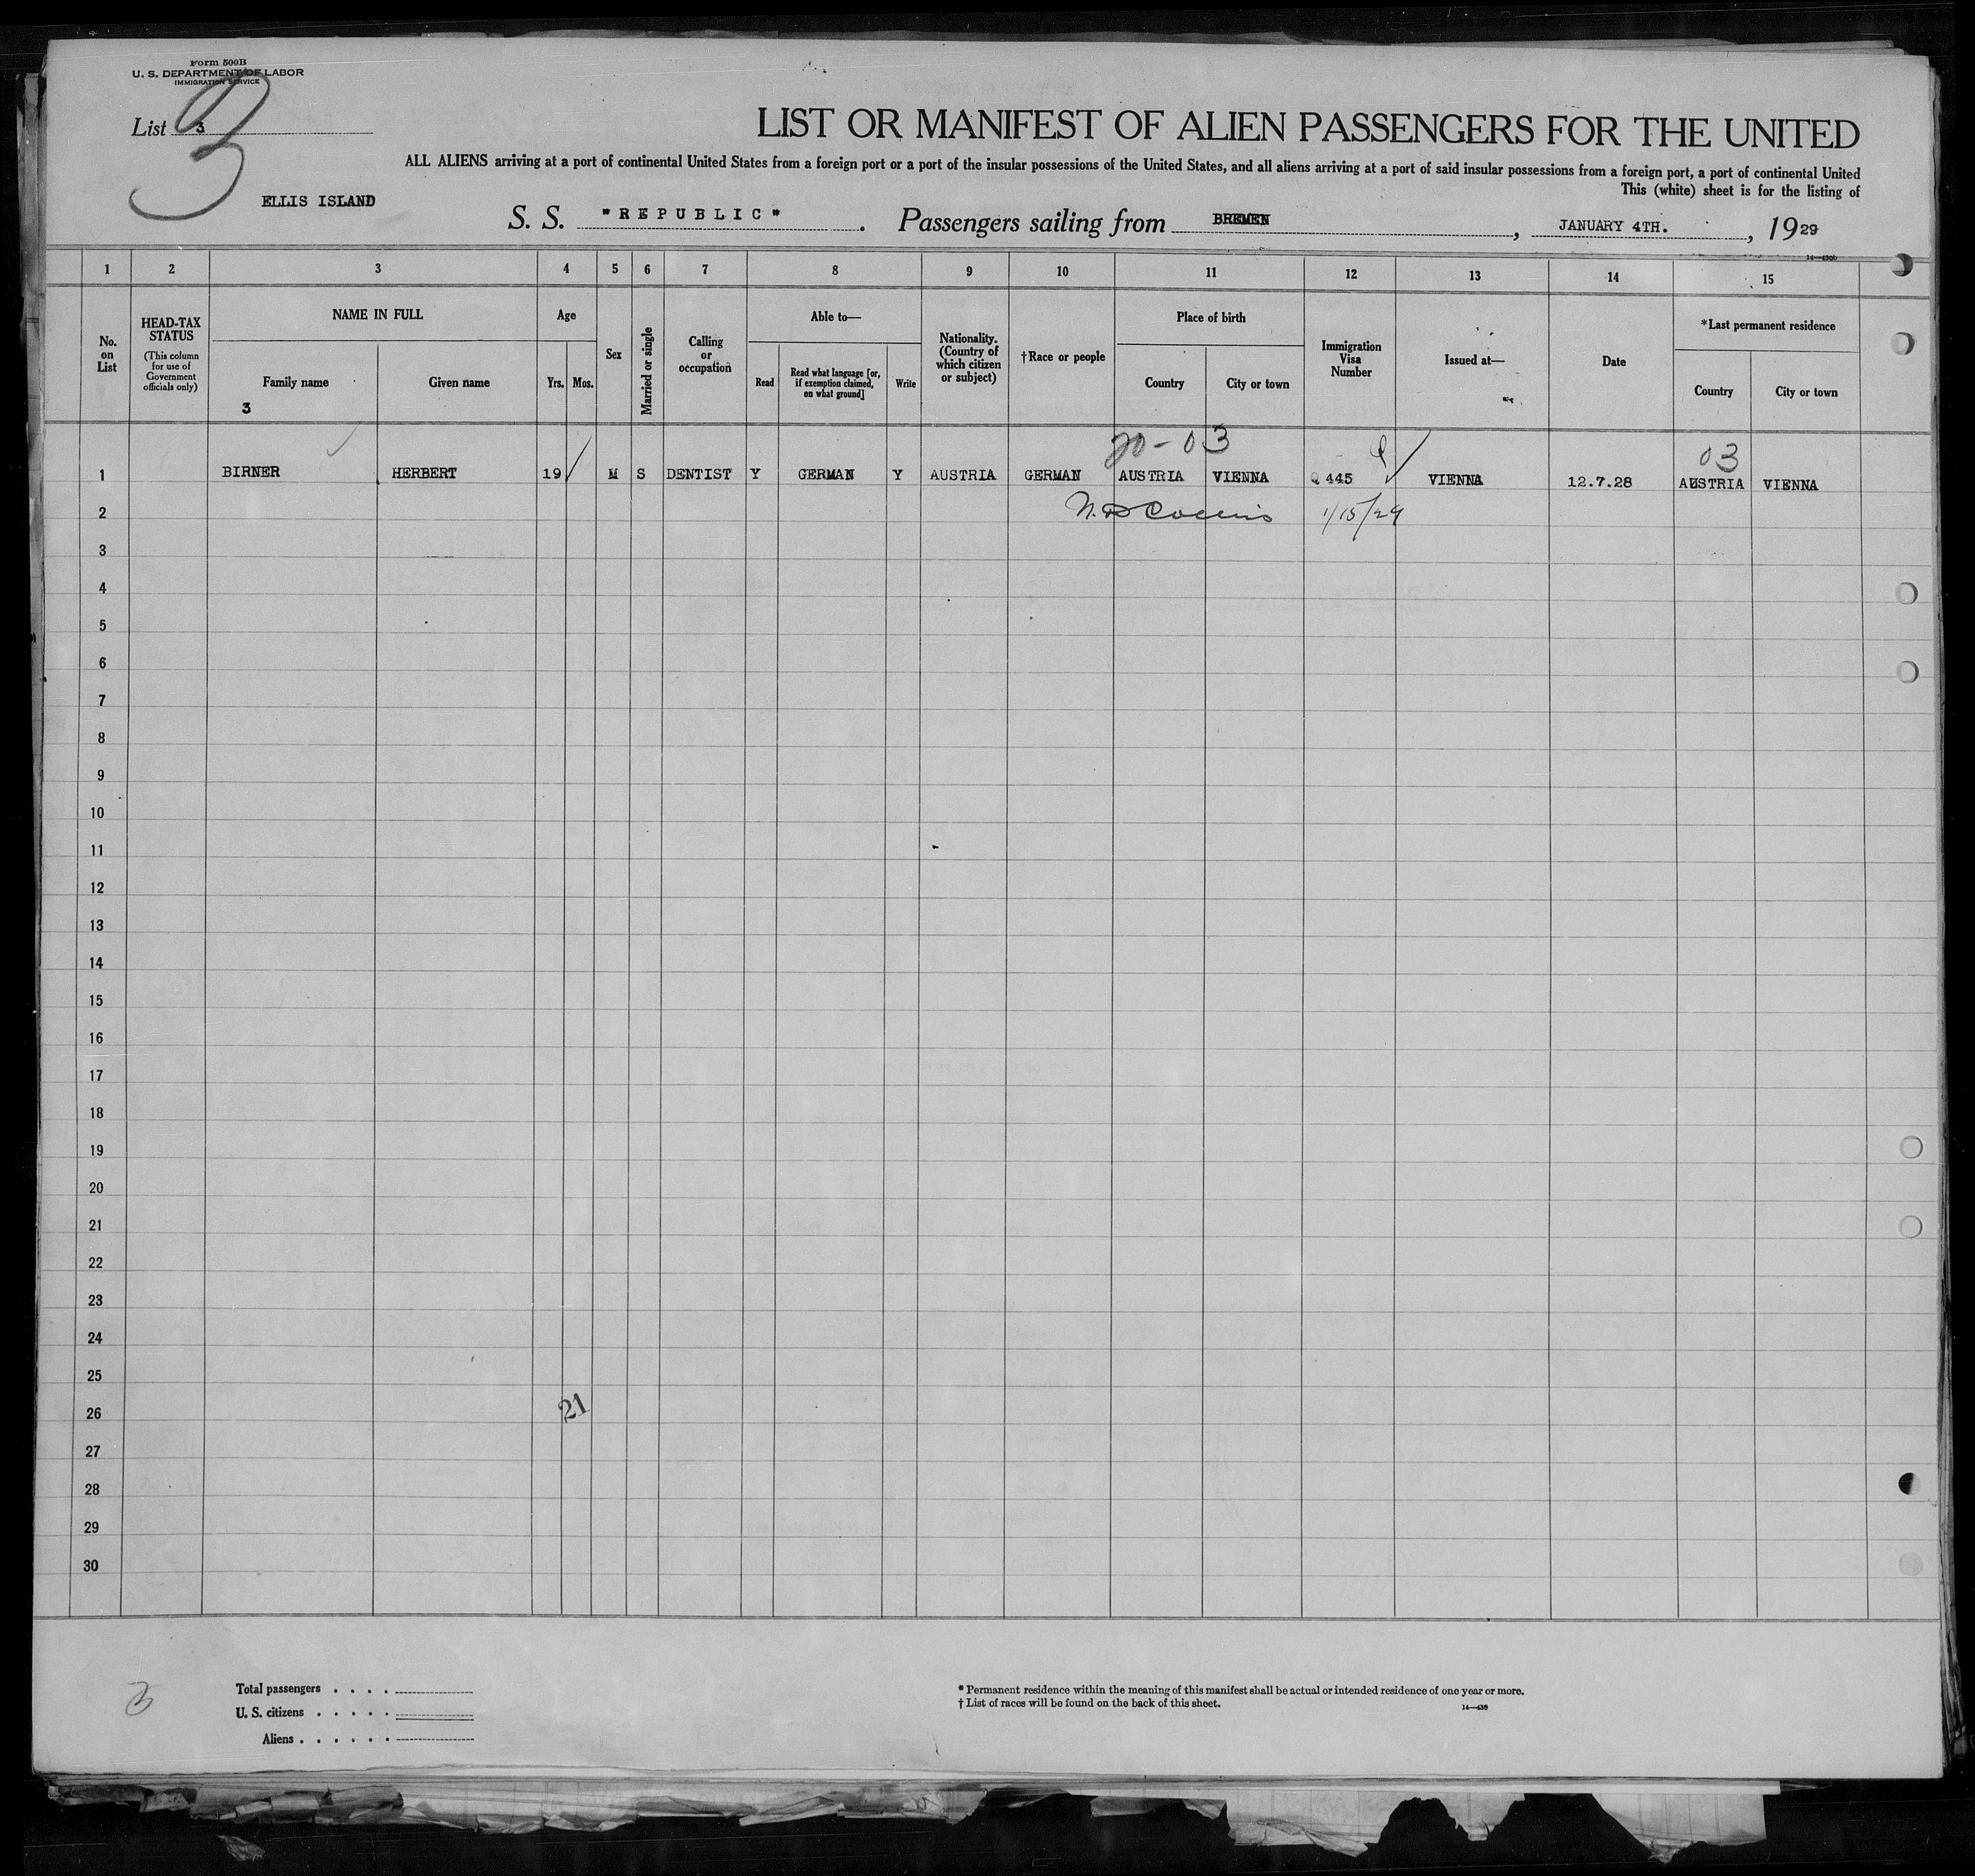 Form 500B
U. S. DEPARTMENT OF LABOR
IMMIGRATION SERVICE
List 3
3
LIST OR MANIFEST OF ALIEN PASSENGERS FOR THE UNITED
ALL ALIENS arriving at a port of continental United States from a foreign port or a port of the insular possessions of the United States, and all aliens arriving at a port of said insular possessions from a foreign port, a port of continental United
This (white) sheet is for the listing of
ELLIS ISLAND
S. S. "REPUBLIC". Passengers sailing from BREMEN, JANUARY 4TH., 1929
14—430b
1 2 3 4 5 6 7 8 9 10 11 12 13 14 15
No. on List
HEAD-TAX STATUS
(This column for use of Government officials only)
NAME IN FULL
Family name
Given name
3
Age
Yrs. Mos.
Sex
Married or single
Calling or occupation
Able to—
Read
Read what language [or, if exemption claimed, on what ground]
Write
Nationality. (Country of which citizen or subject)
†Race or people
Place of birth
Country
City or town
Immigration Visa Number
Issued at—
Date
*Last permanent residence
Country
City or town
20-03
Q
03
1 BIRNER HERBERT 19 M S DENTIST Y GERMAN Y AUSTRIA GERMAN AUSTRIA VIENNA Q 445 VIENNA 12.7.28 AUSTRIA VIENNA
2 Collins 1/15/29
3
4
5
6
7
8
9
10
11
12
13
14
15
16
17
18
19
20
21
22
23
24
25
26 21
27
28
29
30
3
Total passengers . . . .
U. S. citizens . . . . .
Aliens . . . . . .
* Permanent residence within the meaning of this manifest shall be actual or intended residence of one year or more.
† List of races will be found on the back of this sheet.
14—430